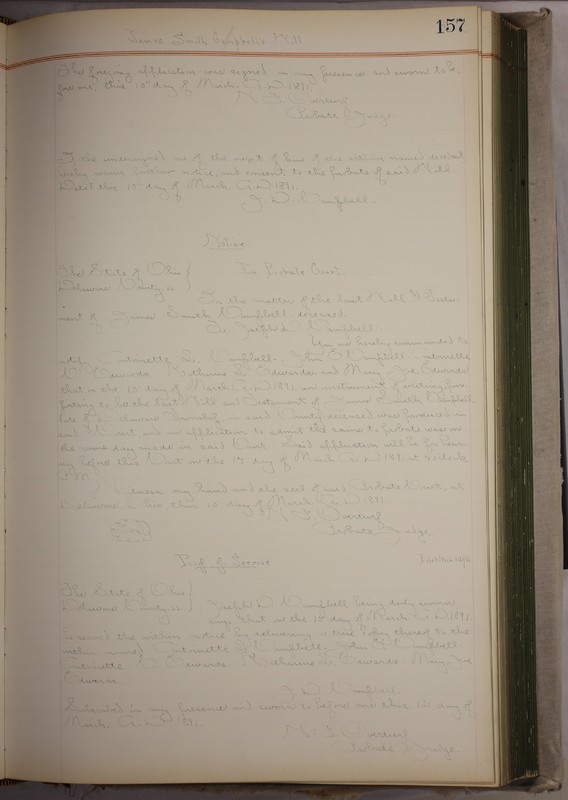 157
James Smith Campbell's Will
The foregoing application was signed in my presence and sworn to be-
fore me, this 10th day of March, A.D. 1891.
Overturf
Probate Judge.
I the undersigned one of the next of kin of the within named deceased
hereby waive further notice, and consent to the probate of said Will.
Dated this 10th day of March A.D. 1891.
J. D. Campbell.
Notice
The State of Ohio
Delaware County, ss
In Probate Court.
In the matter of the last Will & Testa-
ment of James Smith Campbell deceased.
To Joseph D. Campbell.
You are hereby commanded to
notify Antonette L. Campbell, John Campbell, Antonette
Edwards, Catharine L. Edwards and Mary Edwards
that on the 10th day of March A.D. 1891 an instrument of writing pur-
porting to be the last Will and Testament of James Smith Campbell
late of Township in said County, deceased was produced in
said Court, and an application to admit the same to probate was on
the same day made in said Court. Said application will be for hear-
ing before this Court on the day of March A.D. 1891 at o'clock
P.M.
Witness my hand and the seal of said Probate Court, at
Delaware Ohio, this 10th day of March A.D. 1891
Overturf
Probate Judge.
Proof of Service
The State of Ohio
Delaware County, ss
Joseph D. Campbell being duly sworn
says that on the day of March A.D. 1891
he served the within notice by delivering a true copy thereof to the
within named Antonette L. Campbell, John Campbell
Antonette Edwards Catharine L. Edwards, Mary
Edwards.
J. D. Campbell.
Subscribed in my presence and sworn to before me this day of
March, A.D. 1891.
Overturf
Probate Judge.